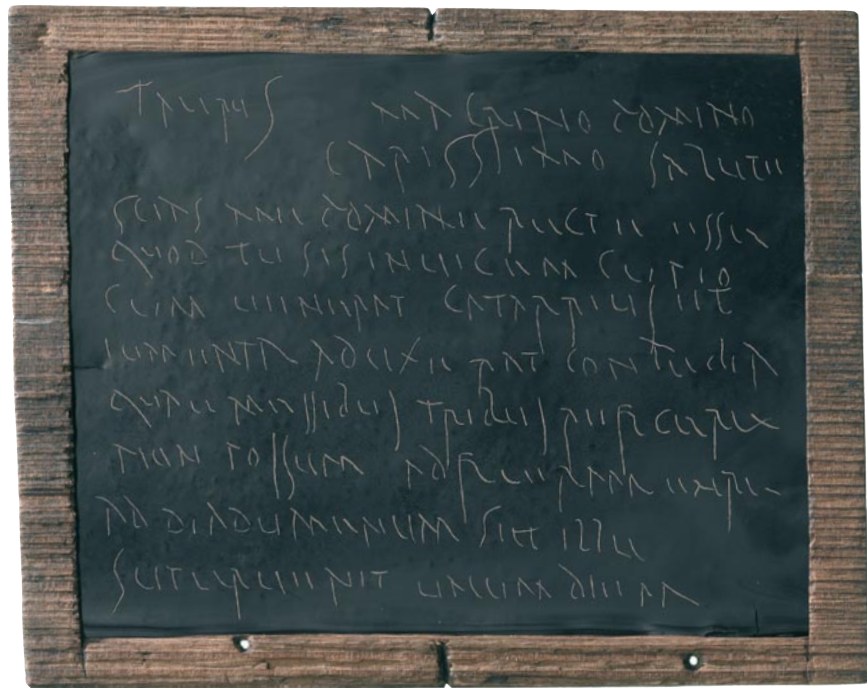 Taurus Macrino domino
carissimo salutem
scias me domine recte esse
quod tu sis invicem cupio
cum venerat Catarrius et
iumenta aduxerat
quae messibus tribus reficere
non possum adfueram
ad Diadumenum set ille
supervenit unum diem